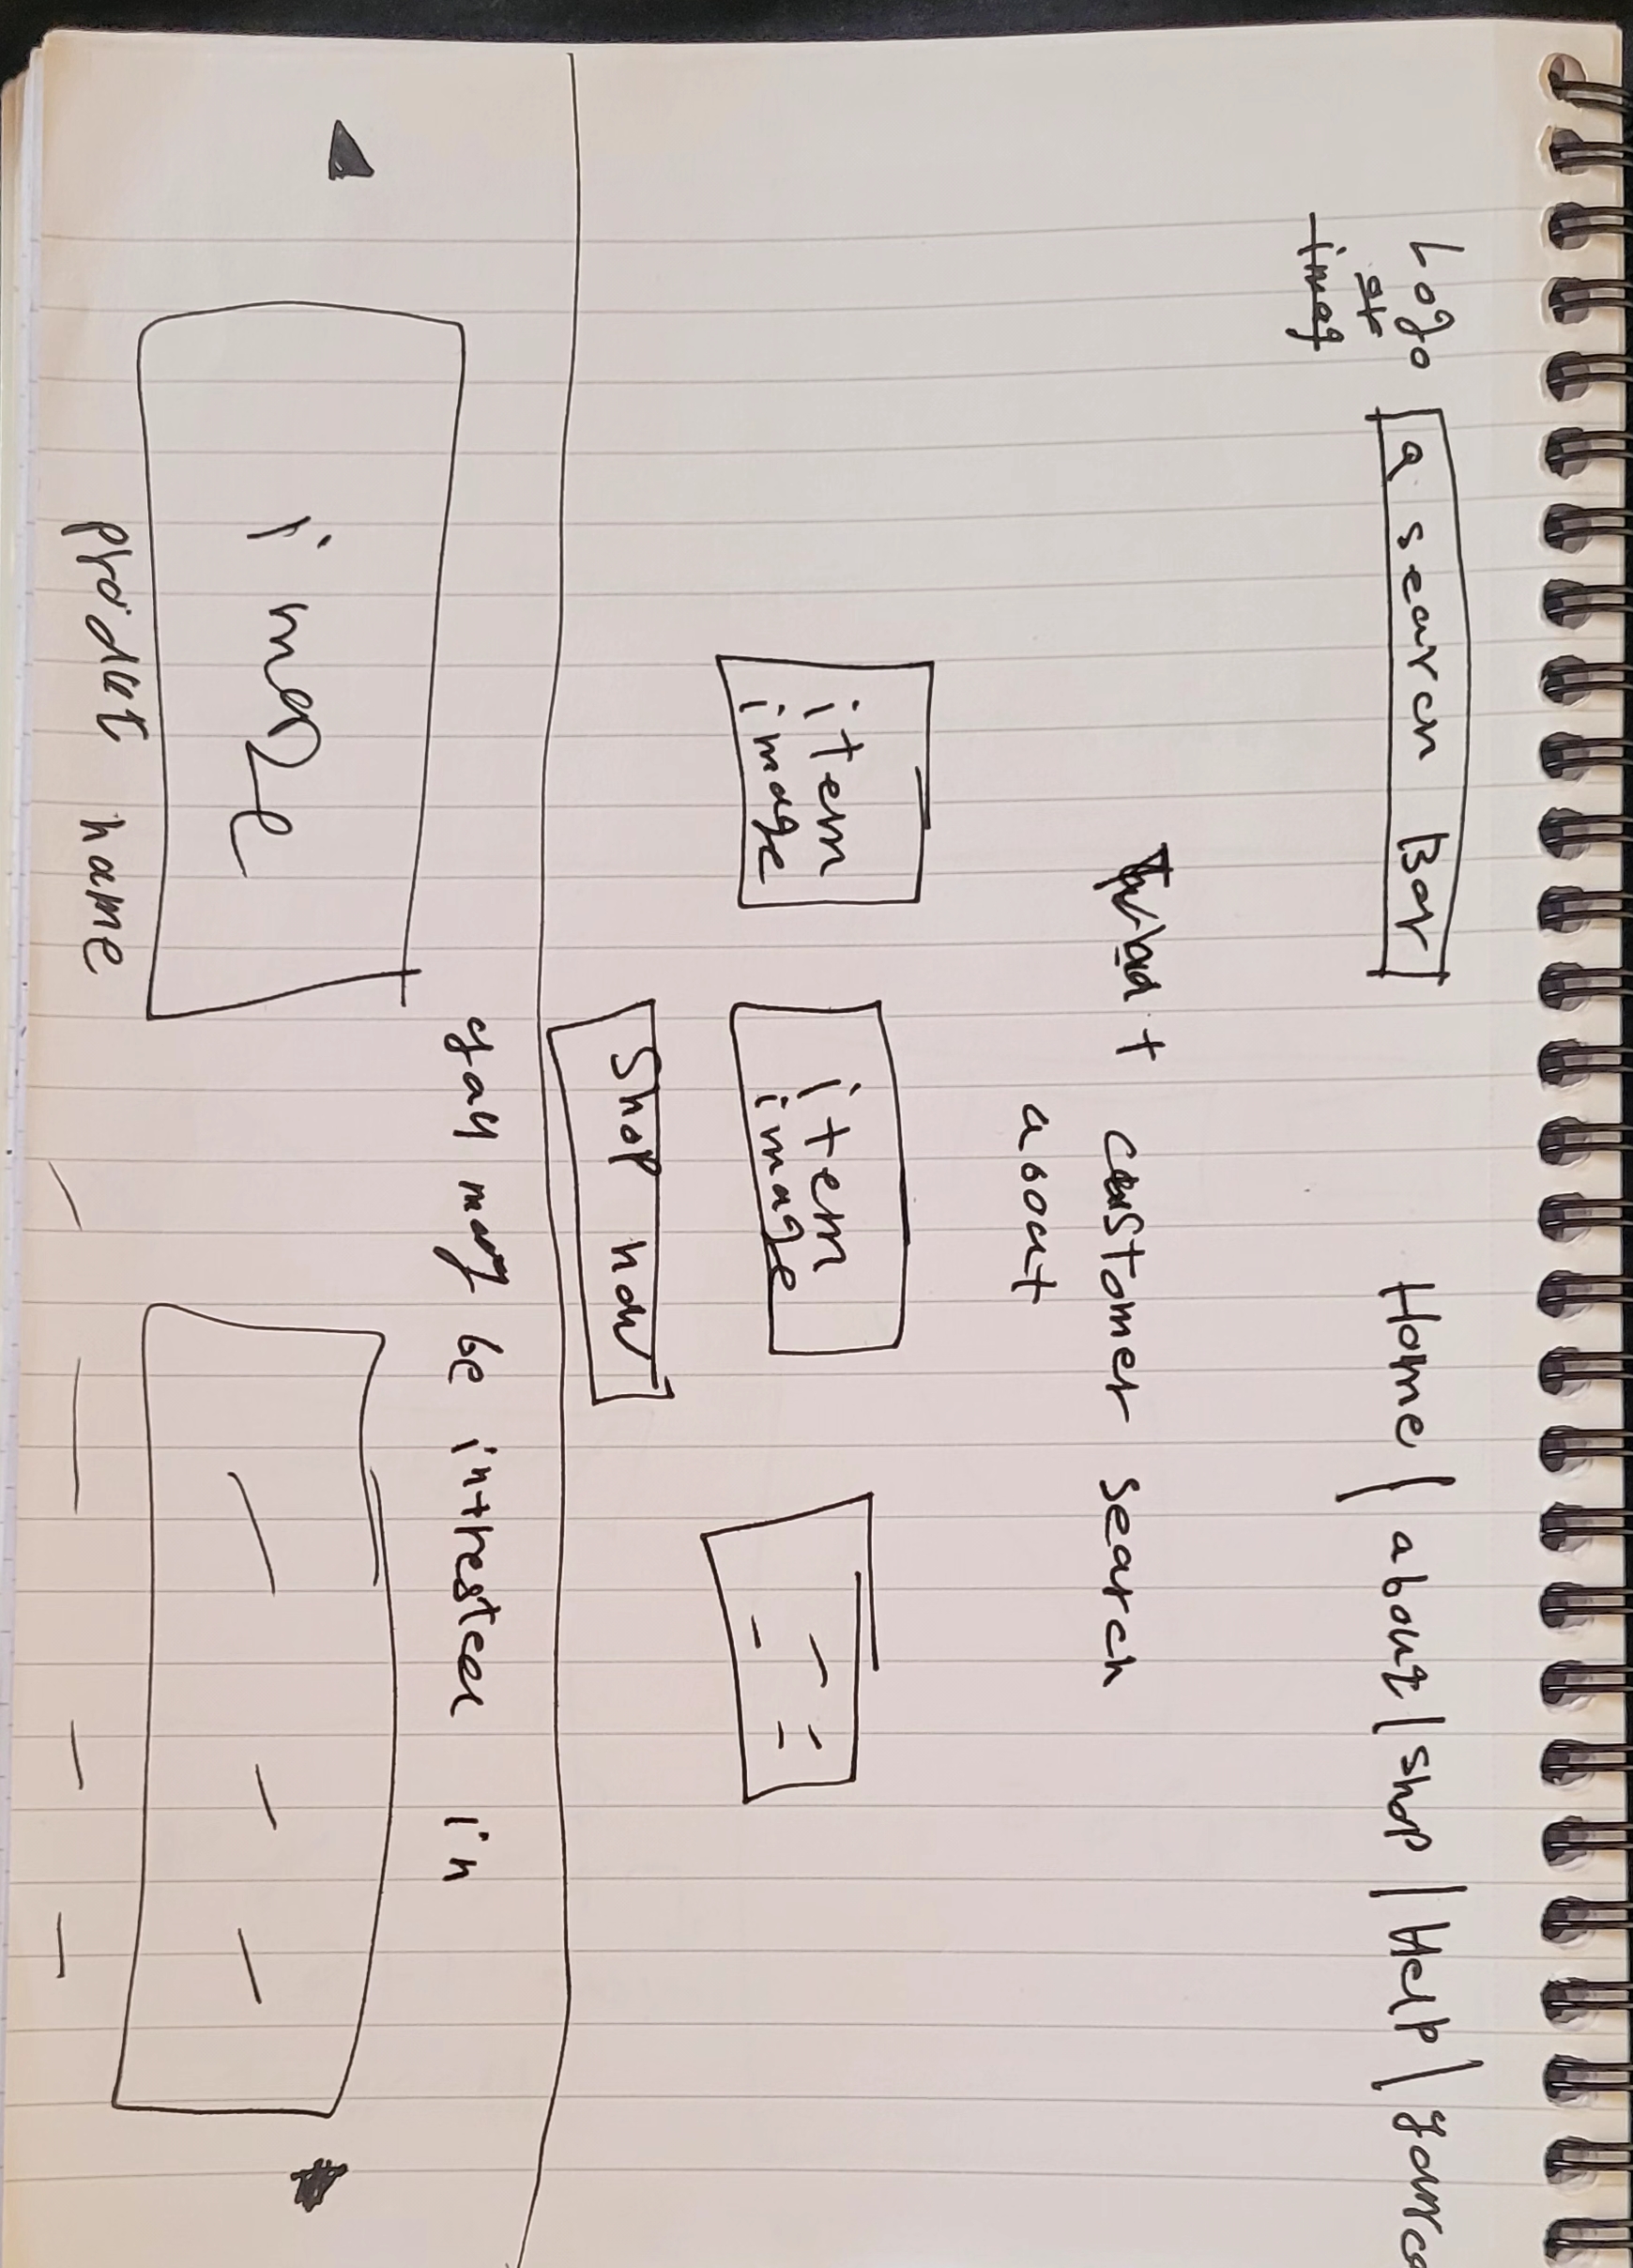 Logo
a search Bar
Home | about | shop | Help |
what customer search
about
item
image
item
image
Shop now
you may be intrested in
image
product name